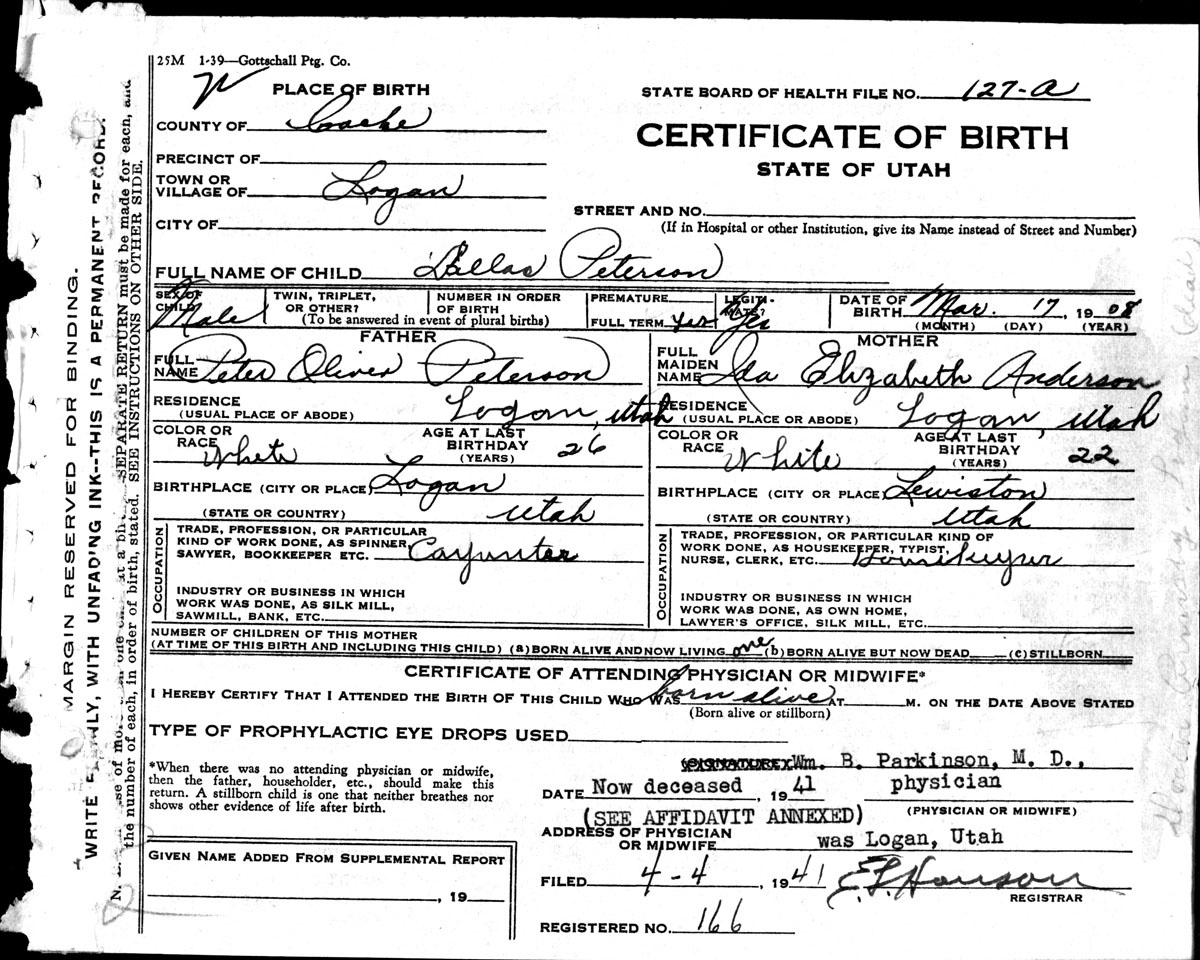 25M 1-39—Gottschall Ptg. Co.
PLACE OF BIRTH
STATE BOARD OF HEALTH FILE NO. 127-A
COUNTY OF Cache
CERTIFICATE OF BIRTH
STATE OF UTAH
PRECINCT OF
TOWN OR
VILLAGE OF Logan
CITY OF
STREET AND NO.
(If in Hospital or other Institution, give its Name instead of Street and Number)
FULL NAME OF CHILD Dellas Peterson
SEX OF CHILD Male
TWIN, TRIPLET, OR OTHER?
NUMBER IN ORDER OF BIRTH
(To be answered in event of plural births)
PREMATURE
FULL TERM Yes
LEGITIMATE? Yes
DATE OF BIRTH Mar. 17, 1908
(MONTH) (DAY) (YEAR)
FATHER
FULL NAME Peter Oliver Peterson
RESIDENCE (USUAL PLACE OF ABODE) Logan, Utah
COLOR OR RACE White
AGE AT LAST BIRTHDAY (YEARS) 26
BIRTHPLACE (CITY OR PLACE) Logan
(STATE OR COUNTRY) Utah
OCCUPATION
TRADE, PROFESSION, OR PARTICULAR
KIND OF WORK DONE, AS SPINNER
SAWYER, BOOKKEEPER ETC. Carpenter
INDUSTRY OR BUSINESS IN WHICH
WORK WAS DONE, AS SILK MILL,
SAWMILL, BANK, ETC.
MOTHER
FULL MAIDEN NAME Ida Elizabeth Anderson
RESIDENCE (USUAL PLACE OR ABODE) Logan, Utah
COLOR OR RACE White
AGE AT LAST BIRTHDAY (YEARS) 22
BIRTHPLACE (CITY OR PLACE) Lewiston
(STATE OR COUNTRY) Utah
OCCUPATION
TRADE, PROFESSION, OR PARTICULAR KIND OF
WORK DONE, AS HOUSEKEEPER, TYPIST,
NURSE, CLERK, ETC. Housekeeper
INDUSTRY OR BUSINESS IN WHICH
WORK WAS DONE, AS OWN HOME,
LAWYER'S OFFICE, SILK MILL, ETC.
NUMBER OF CHILDREN OF THIS MOTHER
(AT TIME OF THIS BIRTH AND INCLUDING THIS CHILD) (a) BORN ALIVE AND NOW LIVING one (b) BORN ALIVE BUT NOW DEAD (c) STILLBORN
CERTIFICATE OF ATTENDING PHYSICIAN OR MIDWIFE*
I HEREBY CERTIFY THAT I ATTENDED THE BIRTH OF THIS CHILD WHO WAS born alive AT M. ON THE DATE ABOVE STATED
(Born alive or stillborn)
TYPE OF PROPHYLACTIC EYE DROPS USED
*When there was no attending physician or midwife,
then the father, householder, etc., should make this
return. A stillborn child is one that neither breathes nor
shows other evidence of life after birth.
SIGNATURE Wm. B. Parkinson, M. D.,
DATE Now deceased, 1941 physician
(SEE AFFIDAVIT ANNEXED) (PHYSICIAN OR MIDWIFE)
ADDRESS OF PHYSICIAN
OR MIDWIFE was Logan, Utah
GIVEN NAME ADDED FROM SUPPLEMENTAL REPORT
, 19
FILED 4-4, 1941 E. L. Hanson
REGISTRAR
REGISTERED NO. 166
MARGIN RESERVED FOR BINDING.
WRITE PLAINLY, WITH UNFADING INK--THIS IS A PERMANENT RECORD.
SEPARATE RETURN must be made for each, and
the number of each, in order of birth, stated. SEE INSTRUCTIONS ON OTHER SIDE.